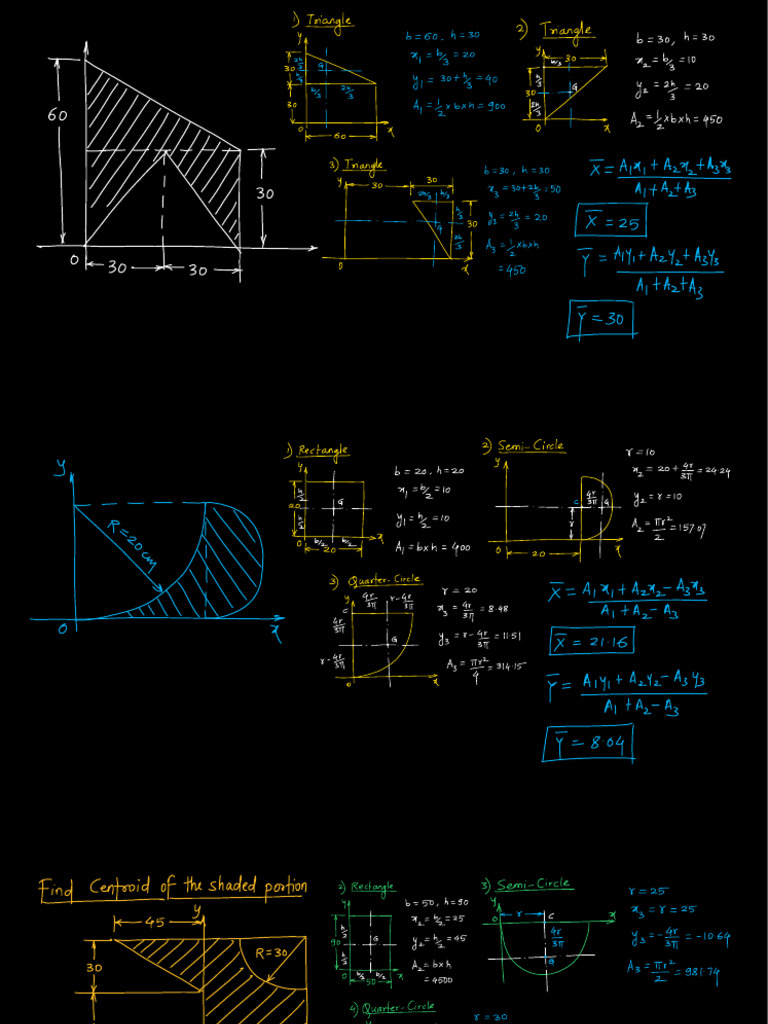 1) Triangle
y
30
2h/3
h/3
G
b/3
2b/3
30
O
60
x
b=60, h=30
x₁ = b/3 = 20
y₁ = 30+h/3 = 40
A₁ = 1/2 × b × h = 900
2) Triangle
y
30
b/3
h/3
30
2h/3
G
O
x
b=30, h=30
x₂ = b/3 = 10
y₂ = 2h/3 = 20
A₂ = 1/2 × b × h = 450
60
30
O
30
30
3) Triangle
y
30
30
2b/3
b/3
h/3
30
2h/3
G
O
x
b=30, h=30
x₃ = 30+2b/3 = 50
y₃ = 2h/3 = 20
A₃ = 1/2 × b × h
= 450
X̄ = A₁x₁ + A₂x₂ + A₃x₃ / A₁ + A₂ + A₃
X̄ = 25
Ȳ = A₁y₁ + A₂y₂ + A₃y₃ / A₁ + A₂ + A₃
Ȳ = 30
y
R=20cm
O
x
1) Rectangle
y
h/2
20
h/2
G
b/2
b/2
O
20
x
b=20, h=20
x₁ = b/2 = 10
y₁ = h/2 = 10
A₁ = b×h = 400
2) Semi-Circle
y
C
4r/3π
G
r
O
20
x
r=10
x₂ = 20+4r/3π = 24.24
y₂ = r = 10
A₂ = πr²/2 = 157.07
3) Quarter-Circle
4r/3π
r-4r/3π
y
C
4r/3π
G
r-4r/3π
O
x
r = 20
x₃ = 4r/3π = 8.48
y₃ = r-4r/3π = 11.51
A₃ = πr²/4 = 314.15
X̄ = A₁x₁ + A₂x₂ − A₃x₃ / A₁ + A₂ − A₃
X̄ = 21.16
Ȳ = A₁y₁ + A₂y₂ − A₃y₃ / A₁ + A₂ − A₃
Ȳ = 8.04
Find Centroid of the shaded portion
y
45
30
R=30
2) Rectangle
y
h/2
90
h/2
G
b/2
b/2
O
50
x
b=50, h=90
x₂ = b/2 = 25
y₂ = h/2 = 45
A₂ = b×h
= 4500
3) Semi-Circle
y
O
r
C
x
4r/3π
G
r = 25
x₃ = r = 25
y₃ = −4r/3π = −10.64
A₃ = πr²/2 = 981.74
4) Quarter-Circle
r = 30